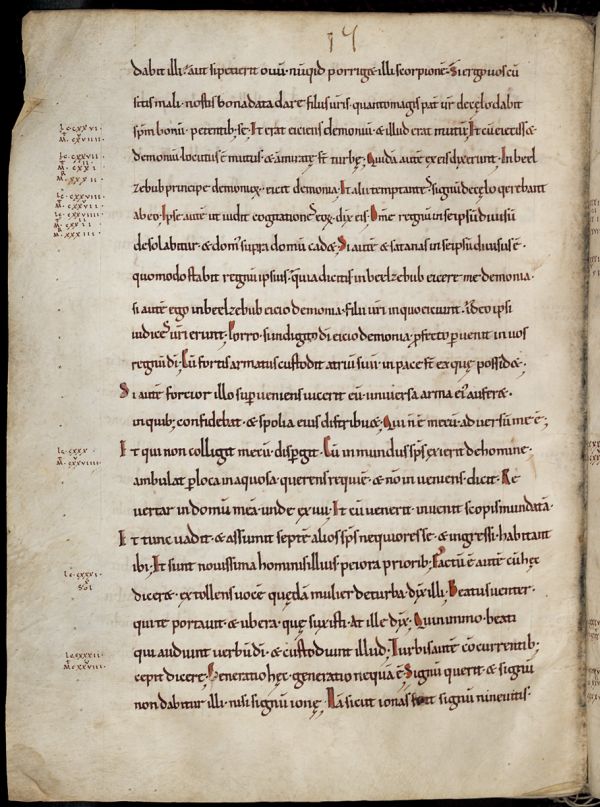 14
dabit illi; aut si petierit ouu̅. nu̅quid porrig& illi scorpione̅. Si ergo uos cu̅
sitis mali. nostis bona data dare filiis uris. quantomagis pat̅ ur̅ de cęlo dabit
sp̅m bonu̅. petentib; se; Et erat eiciens demoniu̅. & illud erat mutu̅; Et cu̅ eiecisse&
demoniu̅. locutus e̅ mutus. & a̅miratę st̅ turbę; Quida̅ aute̅ ex eis dixerunt. In beel
zebub principe demonioꝝ. eicit demonia; Et alii temptantes signu̅ de cęlo querebant
ab eo; Ipse aute̅ ut uidit cogitatione̅s eoꝝ. dix̅ eis; Om̅e regnu̅ in se ipsu̅ diuisu̅
desolabitur. & dom̅ supra domu̅ cad&; Si aute̅ & satanas in se ipsu̅ diuisus e̅.
quomodo stabit regnu̅ ipsius. quia dicitis in beelzebub eicere me demonia.
si aute̅ ego in beelzebub eicio demonia. filii ur̅i in quo eiciunt. Ideo ipsi
iudices ur̅i erunt; Porro. si in digito di̅ eicio demonia; p̱fecto p̱uenit in uos
regnu̅ di̅; Cu̅ fortis armatus custodit atriu̅ suu̅. in pace st̅ ea quę possid&.
Si aute̅ fortior illo sup̱ueniens uicerit eu̅. uniuersa arma ei᾽ aufer&.
in quib; confidebat. & spolia eius distribu&; Qui n̅ e̅ mecu̅. aduersu̅ me e̅;
Et qui non colligit mecu̅. disp̱git. Cu̅ inmundus sp̅s exierit de homine.
ambulat p̱ loca inaquosa. querens requie̅. & no̅ inueniens. dicit. Re
uertar in domu̅ mea̅. unde exiui; Et cu̅ uenerit. inuenit scopis mundata̅.
Et tunc uadit. & assumit septe̅ alios sp̅s nequiores se. & ingressi habitant
ibi; Et sunt nouissima hominis illius peiora priorib; Factu̅ e̅ aute̅ cu̅ hęc
dicer&. extollens uoce̅ quęda̅ mulier de turba. dix̅ illi. Beatus uenter.
qui te portauit. & ubera. quę suxisti. At ille dix̅; Quinimmo. beati
qui audiunt uerbu̅ di̅. & custodiunt illud; Turbis aute̅ co̅currentib;
cepit dicere; Generatio hęc. generatio nequa̅ e̅; Signu̅ querit. & signu̅
non dabitur illi. nisi signu̅ ionę; Na̅ sicut ionas fuit signu̅ nineuitis.
lc. cxxvi
M. cxviiii
lc. cxxvii
M. cxxi
lc. cxxviii
M. cxxii
lc. cxxx
M. cxxviiii
lc. cxxxi
sol
lc. cxxxii
M. cxxviii